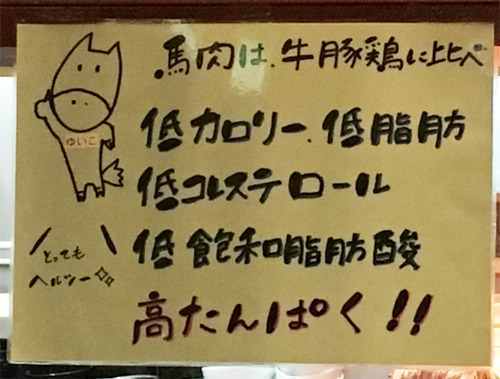 馬肉は、牛豚鶏に比べ
ゆいこ
低カロリー、低脂肪
低コレステロール
とっても
ヘルシー
低飽和脂肪酸
高たんぱく!!